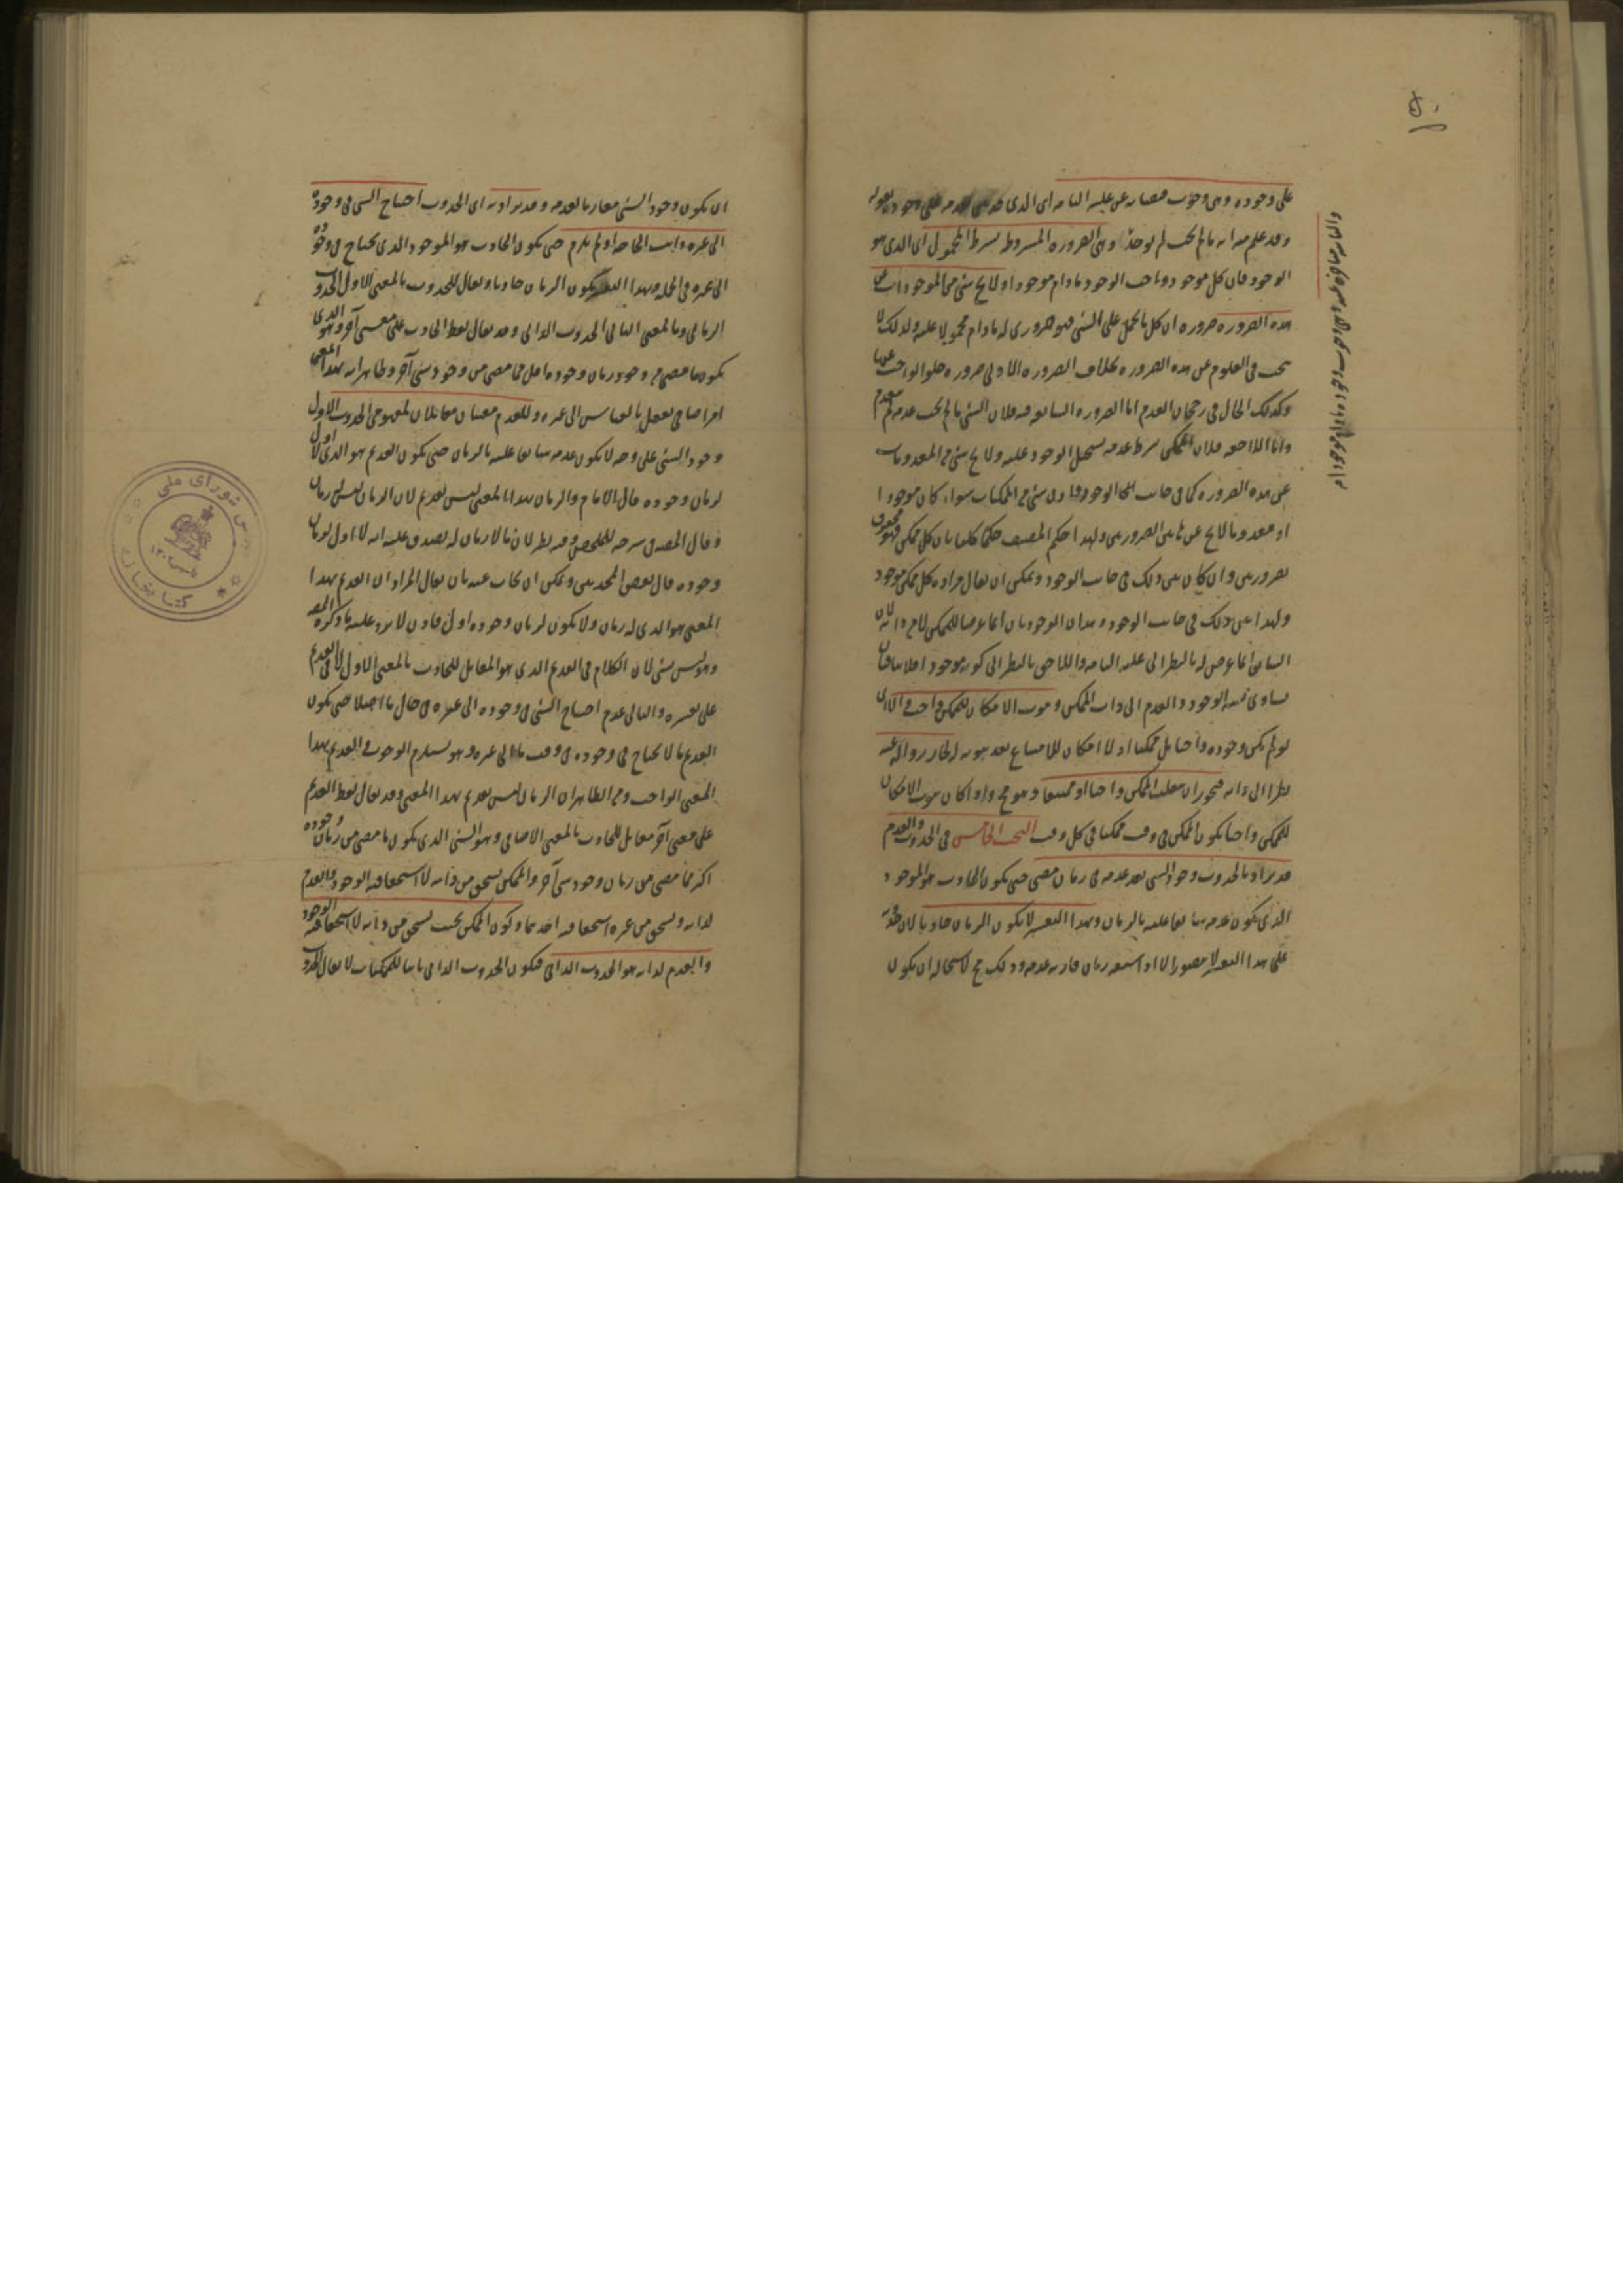 على وجوده وهى وجوب فيضانه عن علته التامة اى الذى على وجوده بقوله
وقد علم منه انه ما لم يجب لم يوجد وهى الضرورة المشروطة بشرط المحمول اى الذى هو
الوجود فان كل موجود فهو واجب الوجود ما دام موجودا ولا يخ شئ من الموجودات عن
هذه الضرورة ضرورة ان كل ما يحمل على الشئ فهو ضرورى له ما دام محمولا عليه ولذلك لا
يبحث فى العلوم عن هذه الضرورة بخلاف الضرورة الاولى ضرورة خلو الواجب عنها
وكذلك الحال فى رجحان العدم اما الضرورة السابقة فلان الشئ ما لم يجب عدمه لم ينعدم
واما اللاحقة فلان الممكن بشرط عدمه يستحيل الوجود عليه ولا يخ شئ من المعدومات
عن هذه الضرورة كما فى جانب الوجود شئ من الممكنات سواء كان موجودا
او معدوما لا يخ عن هاتين الضرورتين ولهذا حكم المصنف حكما كليا بان كل ممكن فهو محفوف
بضرورتين وان كان بين ذلك فى جانب الوجود ويمكن ان يقال مراده كل ممكن موجود
ولهذا بين ذلك فى جانب الوجود وهذان الوجوبان انما عرضا للممكن لا من ذاته لان
السابق انما عرض له بالنظر الى علته التامة واللاحق بالنظر الى كونه موجودا فلا ينافيان
تساوى نسبة الوجود والعدم الى ذات الممكن وثبوت الامكان للممكن واجب والا اى
لو لم يكن وجوده واجبا بل ممكنا اذ لا امكان للامتناع بعد ثبوته له لجاز زواله عنه
نظرا الى ذاته فيجوز ان ينقلب الممكن واجبا او ممتنعا وهو مح واذا كان ثبوت الامكان
للممكن واجبا يكون الممكن فى وقت ممكنا فى كل وقت البحث الخامس فى الحدوث والقدم
قد يراد بالحدوث وجود الشئ بعد عدمه فى زمان مضى حتى يكون الحادث هو الموجود
الذى يكون عدمه سابقا عليه بالزمان وبهذا التفسير لا يكون الزمان حادثا لان حدوثه
على هذا التفسير لا يتصور الا اذا سبقه زمان قارنه عدمه وذلك مح لاستحالة ان يكون
ان يكون وجود الشئ مقارنا لعدمه وقد يراد به اى الحدوث احتياج الشئ فى وجوده
الى غيره دامت الحاجة او لم تدم حتى يكون الحادث هو الموجود الذى يحتاج فى وجوده
الى غيره فى الجملة وبهذا التفسير يكون الزمان حادثا ويقال للحدوث بالمعنى الاول الحدوث
الزمانى وبالمعنى الثانى الحدوث الذاتى وقد يقال لفظ الحادث على معنى آخر وهو الذى
يكون ما مضى من زمان وجوده اقل مما مضى من وجود شئ آخر وظاهر انه بهذا المعنى
امر اضافى يعقل بالقياس الى غيره وللقدم معنيان مقابلان لمفهومى الحدوث الاول
وجود الشئ على وجه لا يكون عدمه سابقا عليه بالزمان حتى يكون القديم هو الذى لا اول
لزمان وجوده قال الامام والزمان بهذا المعنى ليس بقديم لان الزمان ليس له زمان
وقال المصنف فى شرحه للملخص وفيه نظر لان ما لا زمان له يصدق عليه انه لا اول لزمان
وجوده قال بعض المحدثين ويمكن ان يجاب عنه بان يقال المراد ان القديم بهذا
المعنى هو الذى له زمان ولا يكون لزمان وجوده اول فاذن لا يرد عليه ما ذكره المصنف
وهو ليس بشئ لان الكلام فى القديم الذى هو المقابل للحادث بالمعنى الاول لا فى القديم
على تفسيره والثانى عدم احتياج الشئ فى وجوده الى غيره فى حال ما اصلا حتى يكون
القديم ما لا يحتاج فى وجوده فى وقت ما الى غيره وهو يستلزم الوجوب فالقديم بهذا
المعنى الواجب ومن الظاهر ان الزمان ليس بقديم بهذا المعنى وقد يقال لفظ القديم
على معنى آخر مقابل للحادث بالمعنى الاضافى وهو الشئ الذى يكون ما مضى من زمان وجوده
اكثر مما مضى من زمان وجود شئ آخر والممكن يستحق من ذاته لا استحقاقية الوجود والعدم
لذاته ويستحق من غيره استحقاقية احدهما وكون الممكن بحيث يستحق من ذاته لا استحقاقية الوجود
والعدم لذاته هو الحدوث الذاتى فيكون الحدوث الذاتى ثابتا للممكنات لا يقال الحدوث
شوراى ملى
كتابخانه